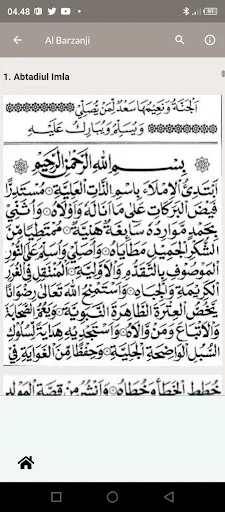 04.48
Al Barzanji
1. Abtadiul Imla
اَلْجَنَّةُ وَنَعِيْمُهَا سَعْدٌ لِمَنْ يُصَلِّيْ
وَيُسَلِّمُ وَيُبَارِكُ عَلَيْهِ
بِسْمِ اللهِ الرَّحْمٰنِ الرَّحِيْمِ
اَبْتَدِئُ الْاِمْلَاءَ بِاسْمِ الذَّاتِ الْعَلِيَّةِ۞ مُسْتَدِرًّا
فَيْضَ الْبَرَكَاتِ عَلٰى مَا اَنَالَهُ وَاَوْلَاهُ۞ وَاُثَنِّيْ
بِحَمْدٍ مَوَارِدُهُ سَائِغَةٌ هَنِيَّةٌ۞ مُمْتَطِيًا مِنَ
الشُّكْرِ الْجَمِيْلِ مَطَايَاهُ۞ وَاُصَلِّيْ وَاُسَلِّمُ عَلَى النُّوْرِ
الْمَوْصُوْفِ بِالتَّقَدُّمِ وَالْاَوَّلِيَّةِ۞ الْمُنْتَقِلِ فِي الْغُرَرِ
الْكَرِيْمَةِ وَالْجِبَاهِ۞ وَاَسْتَمْنِحُ اللهَ تَعَالٰى رِضْوَانًا
يَخُصُّ الْعِتْرَةَ الطَّاهِرَةَ النَّبَوِيَّةَ۞ وَيَعُمُّ الصَّحَابَةَ
وَالْاَتْبَاعَ وَمَنْ وَالَاهُ۞ وَاَسْتَجْدِيْهِ هِدَايَةً لِسُلُوْكِ
السُّبُلِ الْوَاضِحَةِ الْجَلِيَّةِ۞ وَحِفْظًا مِنَ الْغَوَايَةِ فِيْ
خُطَطِ الْخَطَأِ وَخُطَاهُ۞ وَاَنْشُرُ مِنْ قِصَّةِ الْمَوْلِدِ